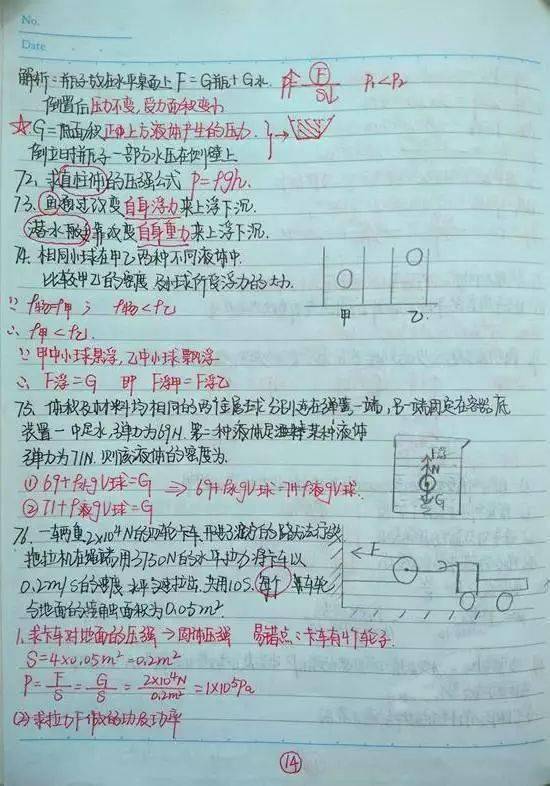 No.
Date
解析:瓶子放在水平桌面上 F=G瓶+G水. P=F/S↓ P₁<P₂
倒置后压力不变,受力面积变小
☆G=底面积正上方液体产生的压力.
倒立时瓶子一部分水压在侧壁上
72. 求直柱体的压强公式 P=ρgh.
73. 鱼通过改变自身浮力来上浮下沉.
潜水艇靠改变自身重力来上浮下沉.
74. 相同小球在甲乙两种不同液体中.
比较甲乙的密度及小球所受浮力的大小.
甲 乙
∵ ρ物=ρ甲; ρ物<ρ乙
∴ ρ甲<ρ乙.
∵ 甲中小球悬浮,乙中小球飘浮
∴ F浮=G 即 F浮甲=F浮乙
75. 体积及材料均相同的两个金属球分别连在弹簧一端,另一端固定在容器底
装置一中是水,弹力为69N. 第二种液体是某种液体
弹力为71N. 则该液体的密度为.
① 69+ρ水gV球=G ⇒ 69+ρ水gV球=71+ρ液gV球.
② 71+ρ液gV球=G
F浮
N
G
76. 一辆重2×10⁴N的四轮卡车,开在的路无法行驶
拖拉机在绳端用3750N的水平拉力将卡车以
0.2m/s的速度水平匀速拉出,共用10S. 每个车轮
与地面的接触面积为0.05m²
F
1. 求卡车对地面的压强 → 固体压强 易错点:卡车有4个轮子.
S=4×0.05m²=0.2m²
P=F/S=G/S=2×10⁴N/0.2m²=1×10⁵Pa
(2)求拉力F做的功及功率
14